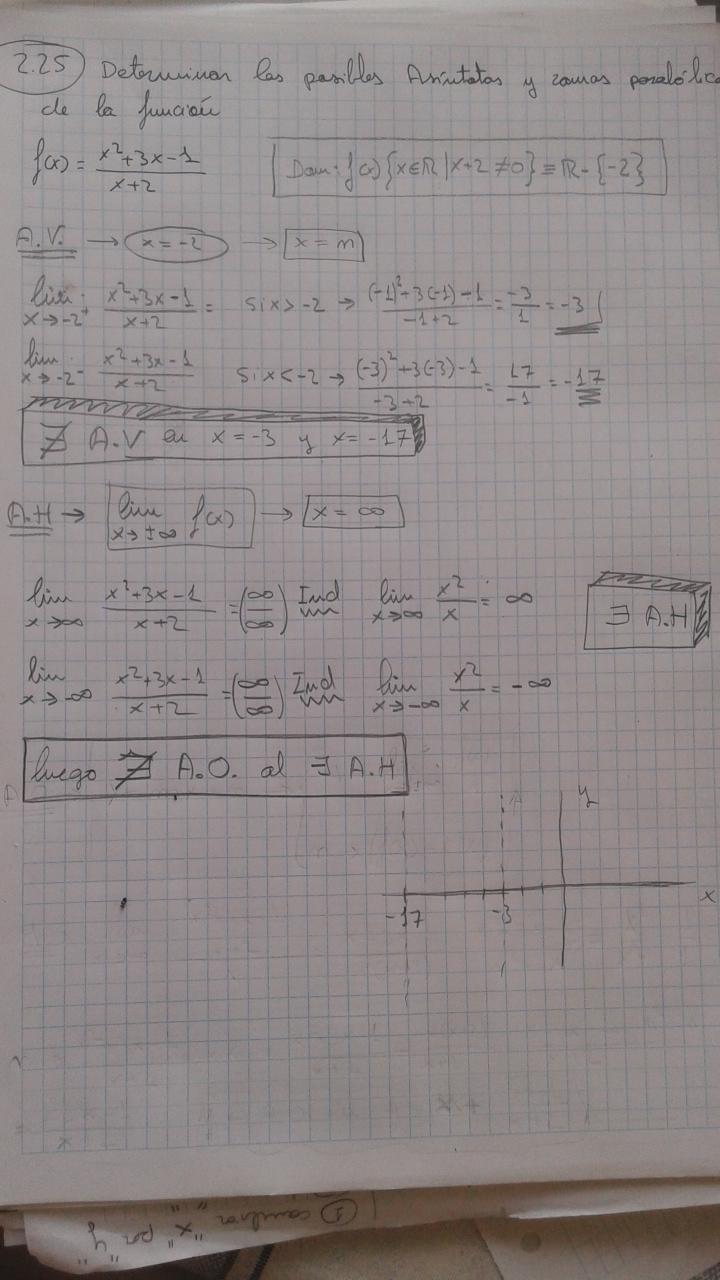 2.25 Determinar las posibles Asíntotas y ramas parabólica
de la función
f(x) = (x²+3x-1)/(x+2)   Dom: f(x) {x∈ℝ | x+2 ≠ 0} ≡ ℝ - {-2}
A.V. → x = -2 → x = n
lim x→-2⁺ (x²+3x-1)/(x+2) = si x > -2 → ((-1)²+3(-1)-1)/(-1+2) = -3/1 = -3
lim x→-2⁻ (x²+3x-1)/(x+2) si x < -2 → ((-3)²+3(-3)-1)/(-3+2) = 17/-1 = -17
∄ A.V en x = -3 y x = -17
A.H → lim x→±∞ f(x) → x = ∞
lim x→∞ (x²+3x-1)/(x+2) = (∞/∞) Ind lim x→∞ x²/x = ∞
∃ A.H
lim x→-∞ (x²+3x-1)/(x+2) = (∞/∞) Ind lim x→-∞ x²/x = -∞
luego ∄ A.O. al ∃ A.H
y
x
-17 -3
① cambiar "x" por "y"